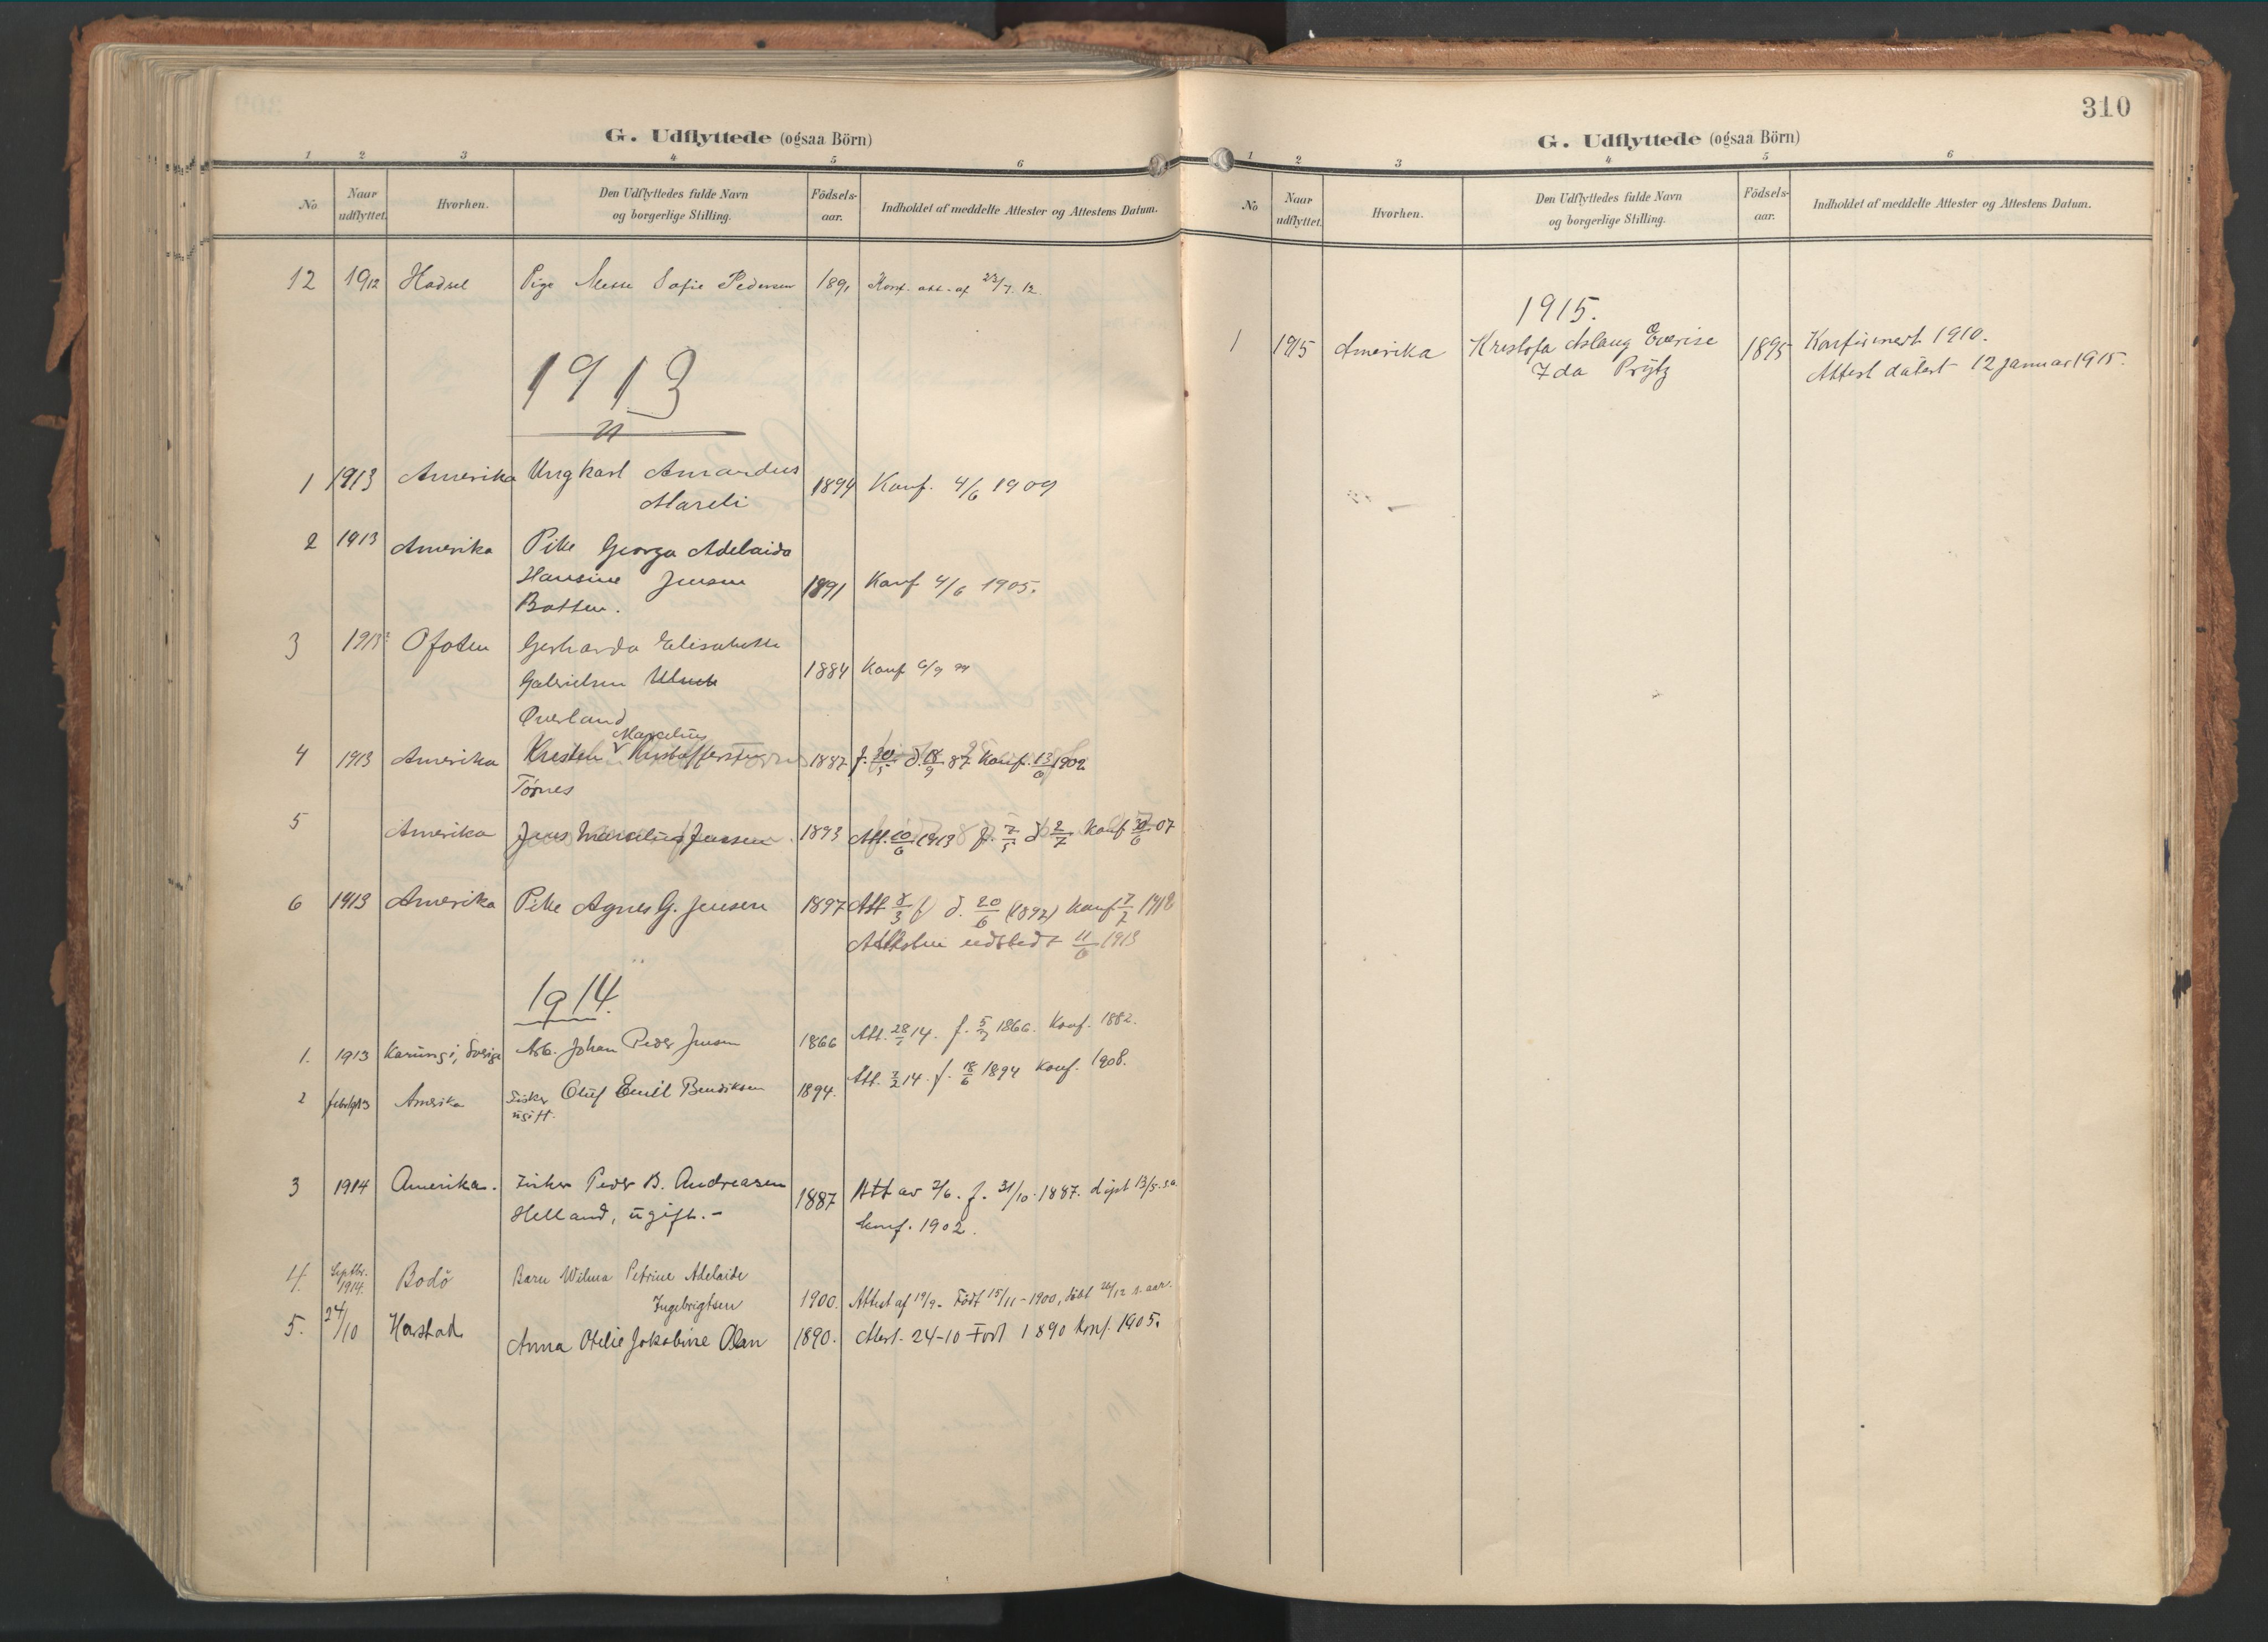 310
G. Udflyttede (ogsaa Börn)
1 2 3 4 5 6
No Naar udflyttet. Hvorhen. Den Udflyttedes fulde Navn og borgerlige Stilling. Födsels-aar. Indholdet af meddelte Attester og Attestens Datum.
12 1912 Hadsel Pige Sofie Pedersen 1891 Konf. att. af 23/7. 12.
1913
1 1913 Amerika Ungkarl Amandus 1894 Konf. 4/6 1909
Mareli
2 1913 Amerika Pike Georga Adelaida
Hansine Jensen 1891 Konf 4/6 1905.
Botten.
3 1913 Ofoten Gerharda Elisabeth
Gabrielsen 1884 Konf
Överland
Marcelius
4 1913 Amerika Kristen Kristoffersen 1887 f. 30/5 d. 18/9 87 Konf. 13/6 1902
Törnes
5 Amerika Jens Marcelius Jensen 1893 Att. 10/6 1913 f. 7/5 d 2/7 Konf 30/6 07
6 1913 Amerika Pike Agnes G. Jensen 1897 Att 8/3 f d. 20/6 (1897) Konf 7/7 1912
udstedt 11/6 1913
1914.
1. 1913 Karungi, Sverige Arb. Johan Peder Jensen 1866 Att. 14. f. 1866. Konf. 1882.
2 Amerika Fisker Oluf Emil Bendiksen 1894. Att. 7/2 14. f. 18/6 1894 Konf. 1908.
ugift.
3 1914 Amerika. Fisker Peder B. Andreasen 1887 Att av 2/6. f. 31/10. 1887. döpt 13/5. s.a.
Helland, ugift.- konf. 1902.
4. Septbr. 1914. Bodö Barn Wilma Petrine Adelaide
Ingebrigtsen 1900. Attest af 19/9. Född 15/11-1900, döbt 26/12 s. aar.
5. 24/10 Harstad Anna Otelie Jakobine Olsen 1890. Attest. 24-10 Född 1890 konf. 1905.
G. Udflyttede (ogsaa Börn)
1 2 3 4 5 6
No Naar udflyttet. Hvorhen. Den Udflyttedes fulde Navn og borgerlige Stilling. Födsels-aar. Indholdet af meddelte Attester og Attestens Datum.
1915.
1 1915 Amerika Kristofa Aslaug Everise 1895 Konfirmert 1910.
Ida Prytz Attest datert 12 januar 1915.